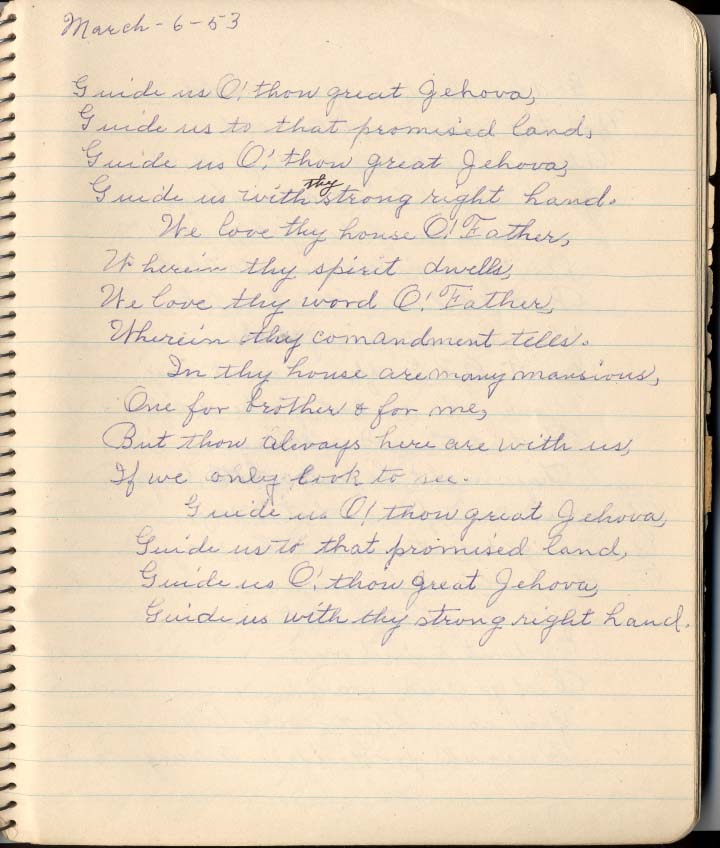 March-6-53
Guide us O! thou great Jehova,
Guide us to that promised land,
Guide us O! thou great Jehova,
Guide us with thy strong right hand.
We love thy house O! Father,
Wherein thy spirit dwells,
We love thy word O! Father,
Wherein thy comandment tells.
In thy house are many mansions,
One for brother & for me,
But thou always here are with us,
If we only look to see.
Guide us O! thou great Jehova,
Guide us to that promised land,
Guide us O! thou great Jehova,
Guide us with thy strong right hand.